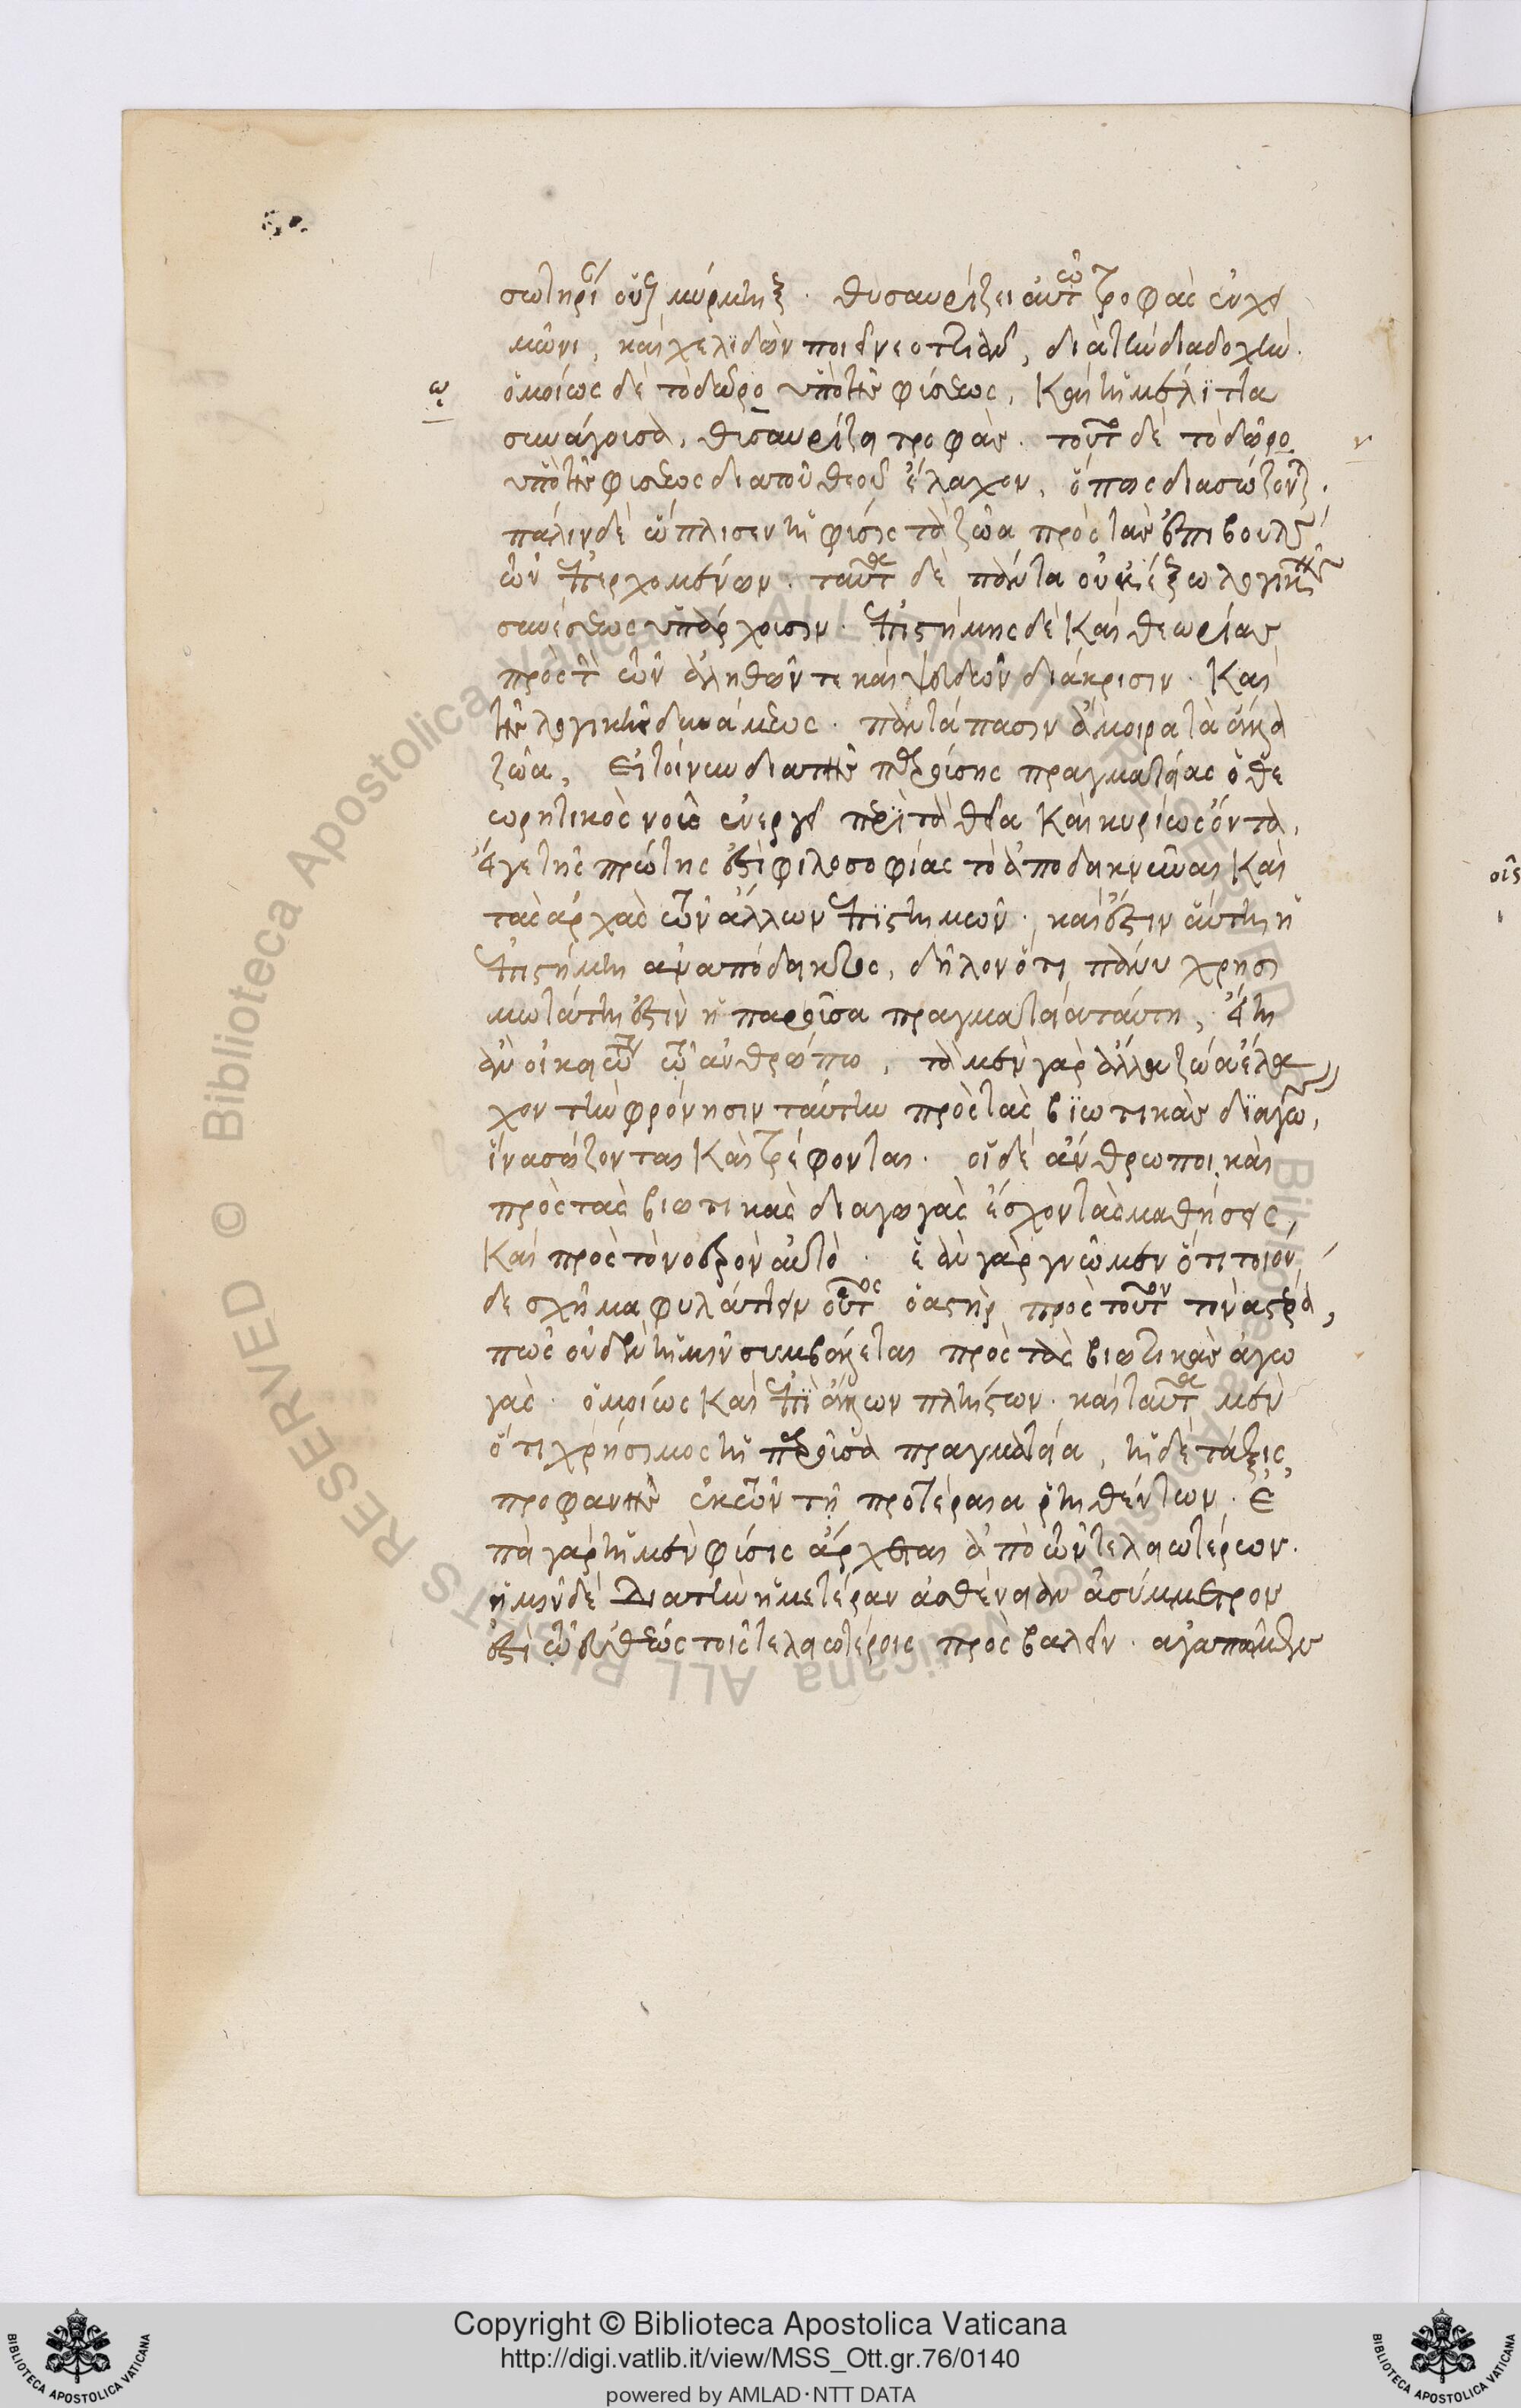 σωτηρί οὖν μύρμηξ. θυσαυρίζει αὐτῶ τροφὰς ἐν χει
μῶνι, καὶ χελιδὼν ποιεῖ νεοττιὰν, διὰ τὴν διαδοχὴν.
ω ὁμοίως δὲ τὸ δῶρο ὑπὸ τῆς φύσεως, καὶ ἡ μέλιττα
συνάγουσα, θισαυρίζει τροφὰς. τοῦτο δὲ τὸ δῶρο ν
ὑπὸ τῆς φύσεως διὰ τοῦ θεοῦ ἔλαχον, ὅπως διασώζοντ.
πάλιν δὲ ὥπλισεν ἡ φύσις τὰ ζῶα πρὸς τὰς ἐπιβουλὰς
τῶν ἐπερχομένων. ταῦτα δὲ πάντα οὐκ ἔξω λογικῆς
συνέσεως ὑπάρχουσιν. ἐπιστήμης δὲ καὶ θεωρίας
πρὸς τ τῶν ἀληθῶν τε καὶ ψευδῶν διάκρισιν. καὶ
τῆς λογικῆς δυνάμεως. παντάπασιν ἄμοιρα τὰ ἄλλα
ζῶα, εἰ τοίνυν διὰ τῆς παρούσης πραγματείας ὁ θε
ωρητικὸς νοῦς ἐνεργεῖ περὶ τὰ θεῖα καὶ κυρίως ὄντα,
εἴγε τῆς πρώτης ἐστὶ φιλοσοφίας τὸ ἀποδεικνῦναι καὶ
τὰς ἀρχὰς τῶν ἄλλων ἐπιστημῶν. καὶ ἔστιν αὕτη ἡ
ἐπιστήμη ἀναπόδεικτος, δῆλον ὅτι πάνυ χρησι
μωτάτη ἐστὶν ἡ παροῦσα πραγματεία ταύτη,
τῶ ἀνθρώπω, τὰ μὲν γὰρ ἄλλα ζῶα ἔλα
χον τὴν φρόνησιν ταύτην πρὸς τὰς βϊωτικὰς δϊαγω,
ἵνα σώζονται καὶ τρέφονται. οἱ δὲ ἄνθρωποι καὶ
πρὸς τὰς βιωτικὰς διαγωγὰς ἔσχον τὰς μαθήσεις,
καὶ πρὸς τὸ νοερὸν αὐτὸ. ἐὰν γὰρ γνῶμεν ὅτι τοιόν
δε σχῆμα φυλάττειν οὗτος ὁ ἀστὴρ πρὸς τοῦτον τὸν ἀστέρα,
πῶς οὐδὲν ἡμῖν συμβάλλεται πρὸς τὰς βιωτικὰς ἀγω
γὰς. ὁμοίως καὶ ἐπὶ ἄλλων πλείστων. καὶ ταῦτα μὲν
ὅτι χρήσιμος ἡ παροῦσα πραγματεία, ἡ δὲ τάξις
προφανὴς ἐκ τῶν τῆ προτέραια ῥηθέντων. ἐ
πεὶ γὰρ ἡ μὲν φύσις ἄρχεται ἀπὸ τῶν τελειωτέρων.
ἡμῖν δὲ διὰ τὴν ἡμετέραν ἀσθένειαν ἀσύμμετρον
ἐστὶ τῶ εὐθέως τοῖς τελειωτέροις προσβαλεῖν. ἀγαπῶμεν
οἷς
Copyright © Biblioteca Apostolica Vaticana
http://digi.vatlib.it/view/MSS_Ott.gr.76/0140
powered by AMLAD·NTT DATA
© Biblioteca Apostolica Vaticana ALL RIGHTS RESERVED
© Biblioteca Apostolica Vaticana ALL RIGHTS RESERVED
BIBLIOTECA APOSTOLICA VATICANA
BIBLIOTECA APOSTOLICA VATICANA